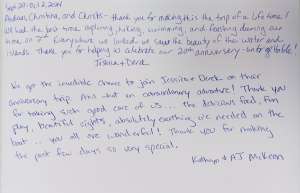 Sept 20 - Oct 2, 2024
Andrew, Christina, and Christi - Thank you for making this the trip of a life time!
We had the best time exploring, hiking, swimming, and feasting during our
time on 2nd Everywhere we looked we saw the beauty of this water and
islands. Thank you for helping us celebrate our 20th anniversary - unforgettable!
Jessica + Derek
We got the incredible chance to join Jessica + Derek on their
anniversary trip. And what an extraordinary adventure! Thank you
for taking such good care of us... the delicious food, fun
play, beautiful sights, absolutely everything we needed on the
boat... you all are wonderful! Thank you for making
the past few days so very special.
Kathryn & AJ McKeon